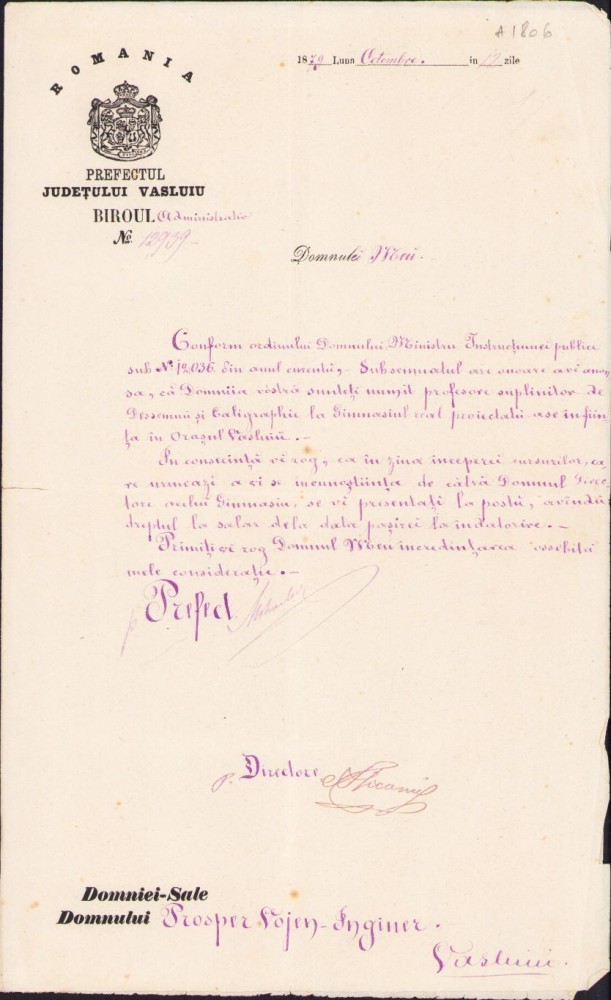 A 1806
ROMANIA
1879 Luna Octombre. in 12 zile
PREFECTUL
JUDEȚULUI VASLUIU
BIROUL Administrativ
No. 12939
Domnule Meu.
Conform ordinului Domnului Ministru Instrucțiunei publice
sub No. 12,036 din anul curentŭ, Subsemnatul are onoare a vĕ anun
sa, că Domniia vóstră sunteți numit profesore suplinitor de
Dessemnŭ și Caligraphie la Gimnasiul real proiectatŭ a se înfiin
ța în Orașul Vasluiŭ.
In consecință vĕ rog, ca în ziua începerei cursurilor, ca
re urmeaḑĭ a vi se încunoștiința de cătră Domnul Direc
tore acelui Gimnasiu, se vĕ presentați la postŭ, avêndŭ
dreptul la salar dela data pașirei la îndatorire.
Primiți vĕ rog Domnul Meu incredințarea ossebitei
mele considerație.
p Prefect
p. Directore
Domniei-Sale
Domnului Prosper Vojen-Inginer.
Vasluiŭ.